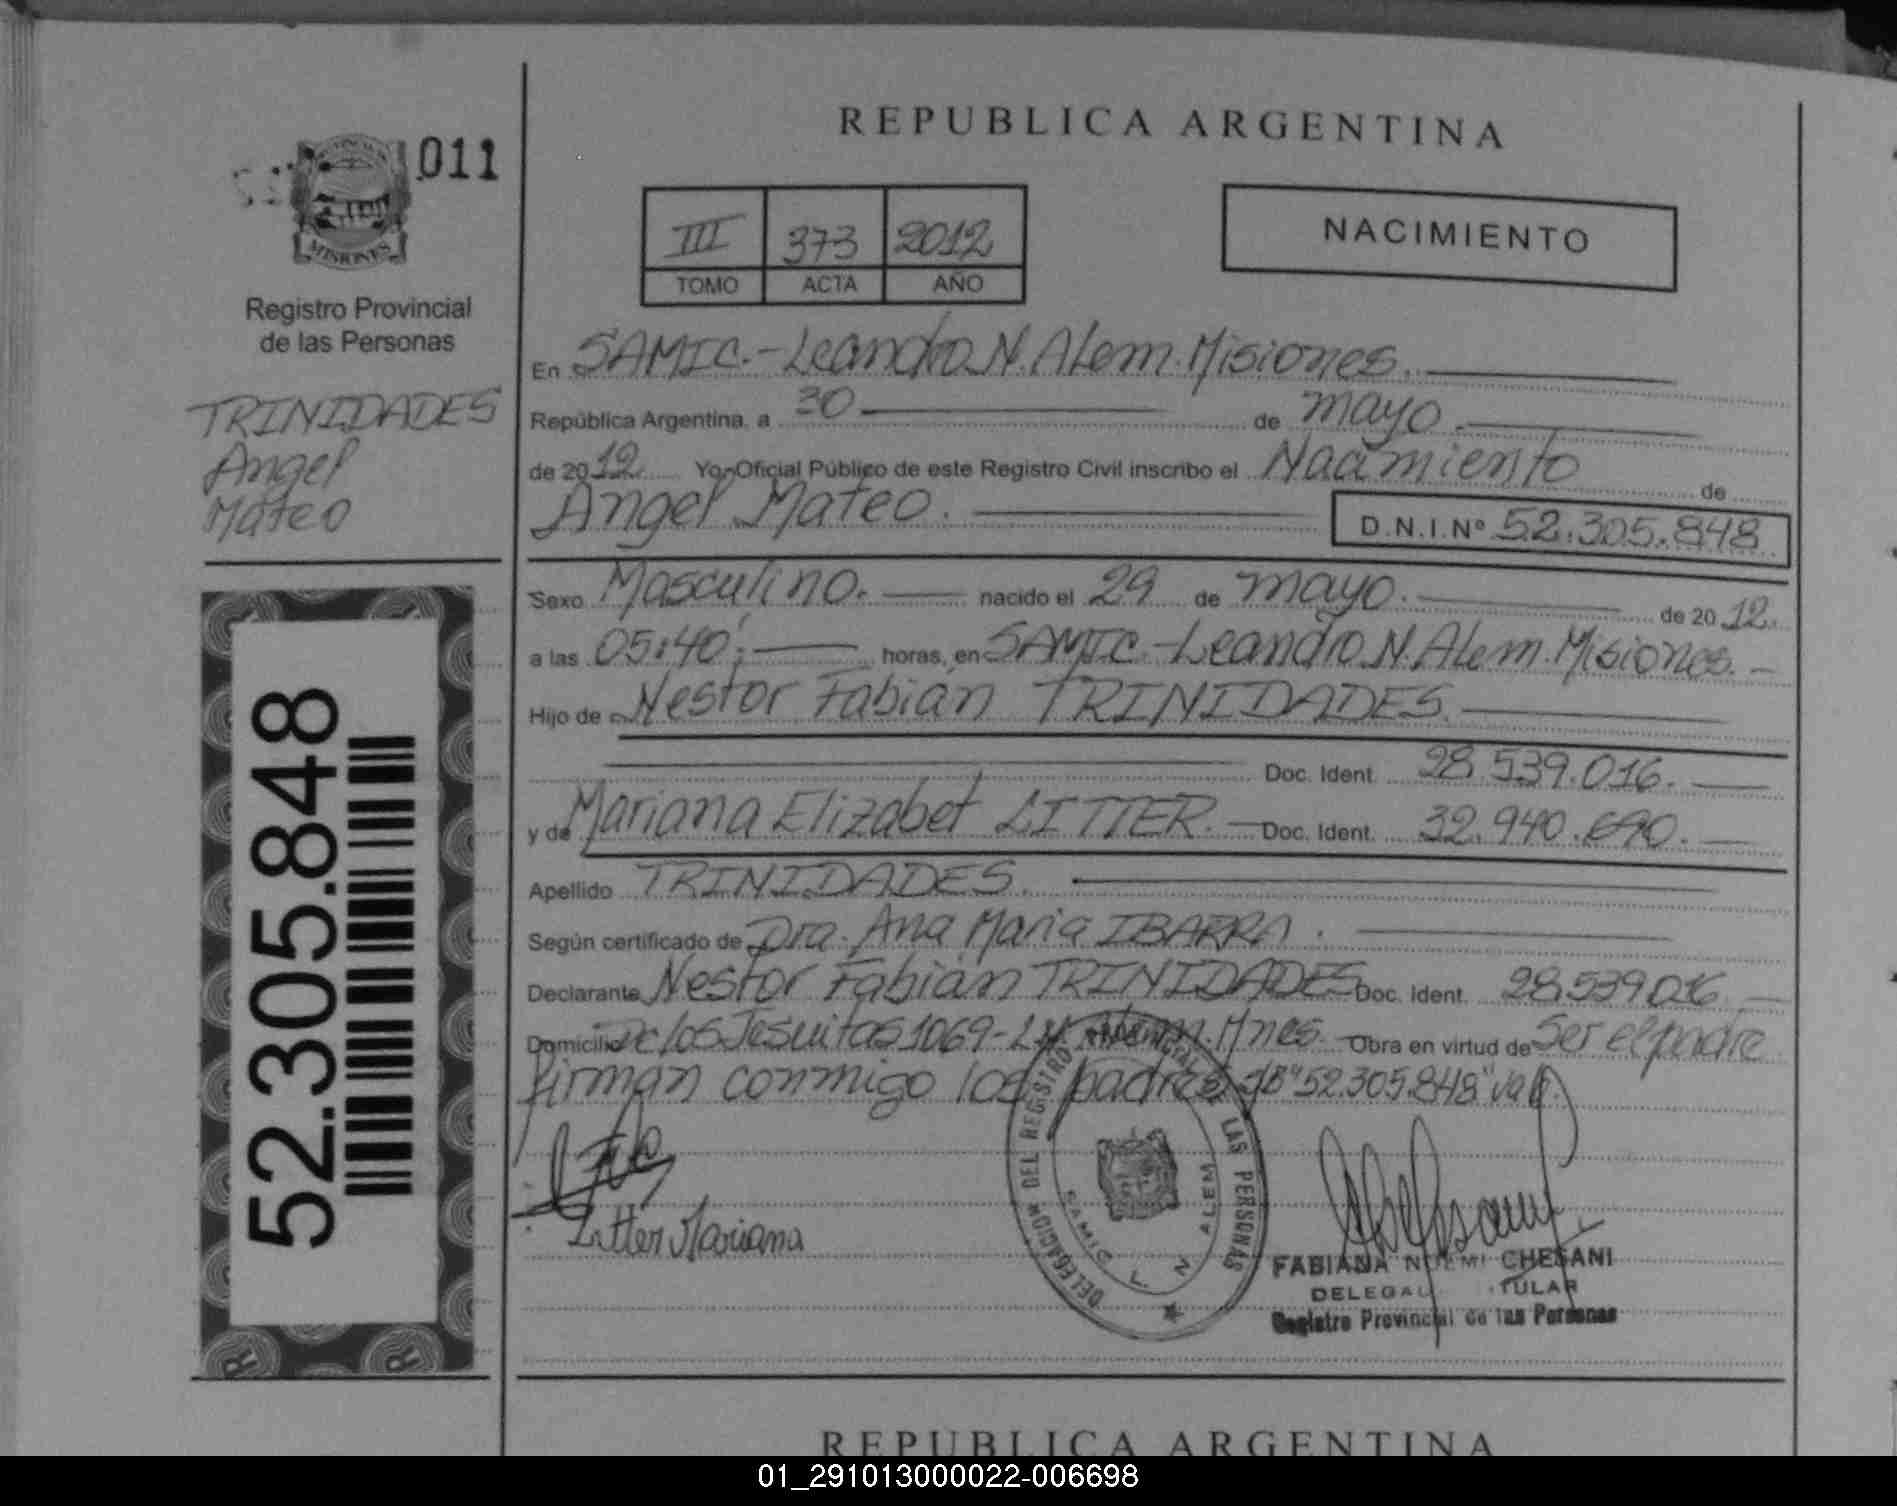 011
MISIONES
Registro Provincial
de las Personas
TRINIDADES
Angel
Mateo
52.305.848
REPUBLICA ARGENTINA
III 373 2012
TOMO ACTA AÑO
NACIMIENTO
En SAMIC.-Leandro N. Alem. Misiones.
República Argentina, a 30 de mayo.
de 2012 Yo, Oficial Público de este Registro Civil inscribo el Nacimiento de
Angel Mateo.
D.N.I.Nº 52.305.848
Sexo Masculino. nacido el 29 de mayo. de 2012.
a las 05:40'. horas, en SAMIC.-Leandro N. Alem. Misiones.
Hijo de Nestor Fabián TRINIDADES.
Doc. Ident. 28.539.016.
y de Mariana Elizabet LITTER. Doc. Ident. 32.940.690.
Apellido TRINIDADES.
Según certificado de Dra. Ana Maria IBARRA.
Declarante Nestor Fabián TRINIDADES Doc. Ident. 28.539.016.
Domicilio De los Jesuitas 1069- Alem. Mnes. Obra en virtud de Ser el padre
firman conmigo los padres "52.305.848" vale.
Litter Mariana
DELEGACION DEL REGISTRO PROVINCIAL DE LAS PERSONAS
SAMIC L. N. ALEM
FABIANA NOEMI CHESANI
DELEGADA TITULAR
Registro Provincial de las Personas
REPUBLICA ARGENTINA
01_291013000022-006698